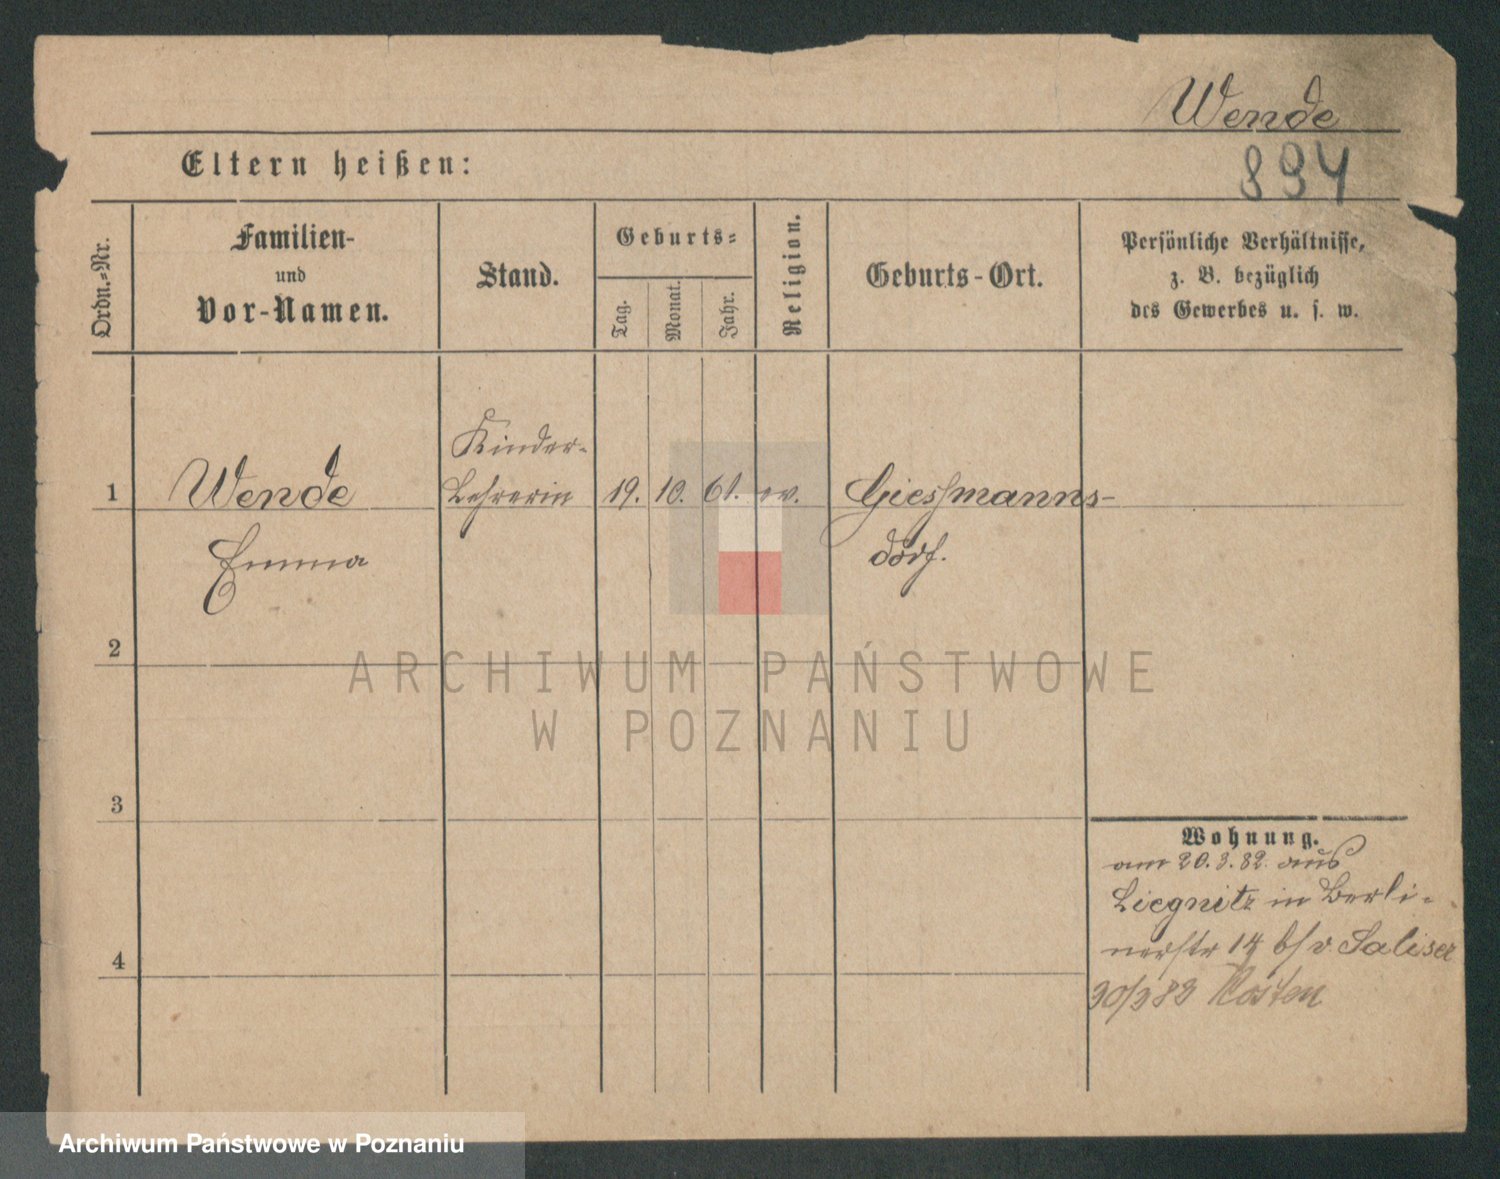 Wende
Eltern heißen:
894
Ordn.-Nr.
Familien-
und
Vor-Namen.
Stand.
Geburts-
Tag.
Monat.
Jahr.
Religion.
Geburts-Ort.
Persönliche Verhältnisse,
z. B. bezüglich
des Gewerbes u. s. w.
Kinder-
1 Wende Lehrerin 19. 10. 61. ev. Giessmanns-
Emma dorf.
2
ARCHIWUM PAŃSTWOWE
W POZNANIU
3
Wohnung.
am 20.3.82. aus
Liegnitz in Berli-
nerstr 14 b/v. Saliser
4
30/3 83 Kosten
Archiwum Państwowe w Poznaniu